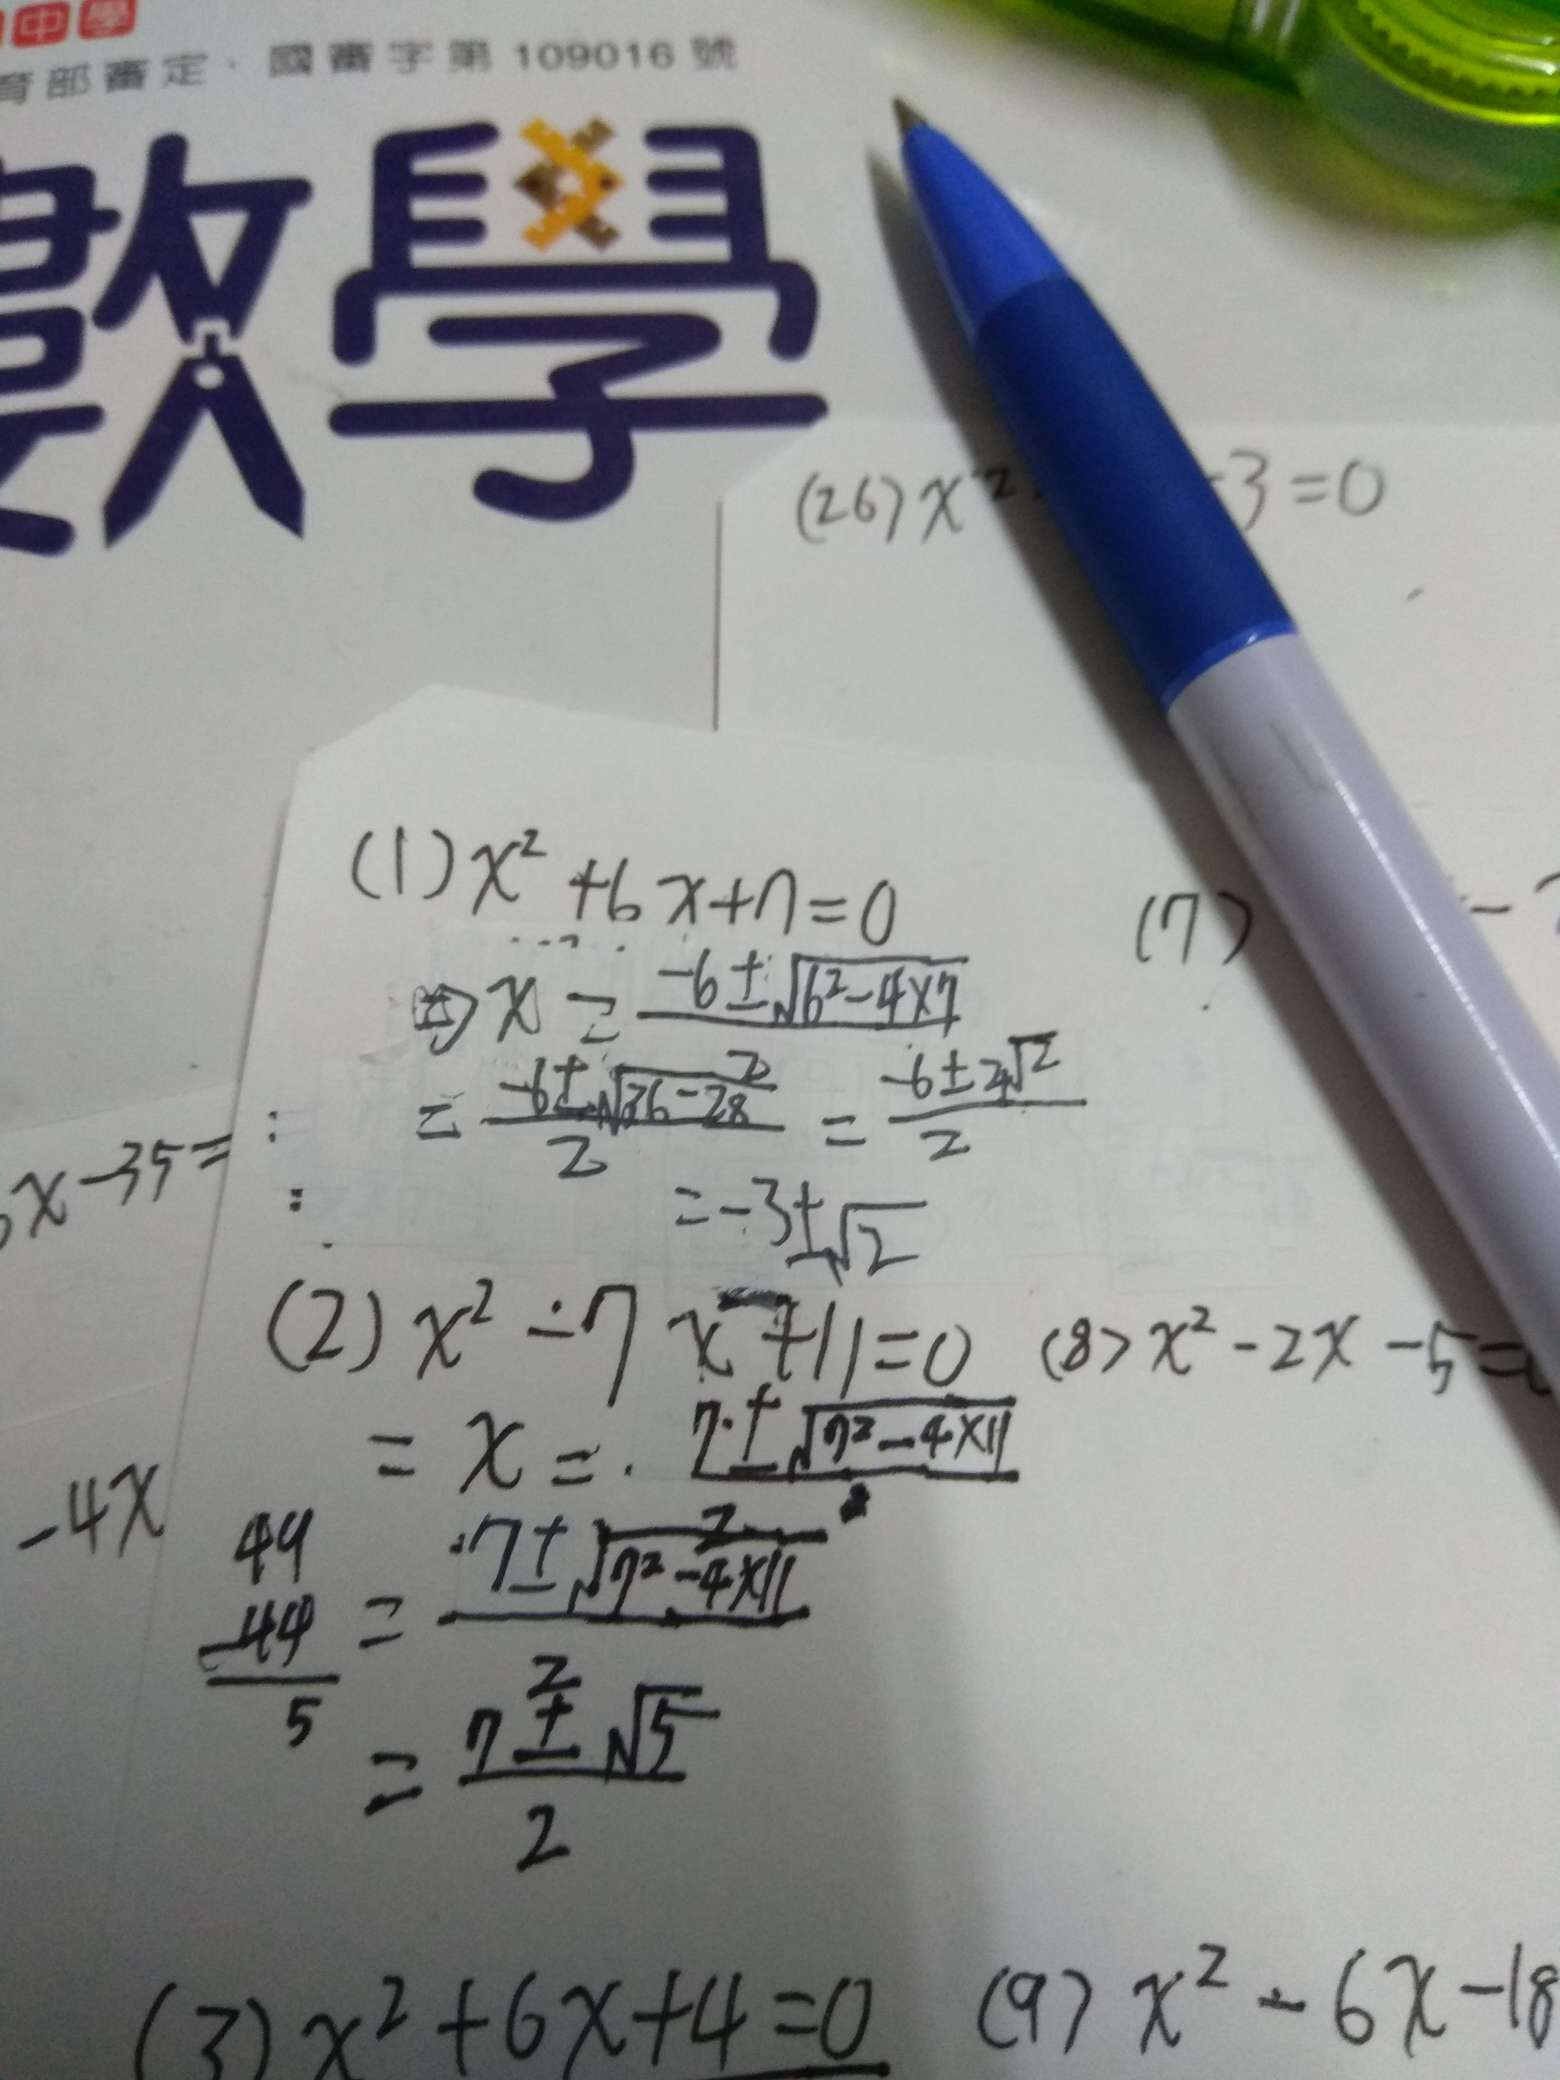 中學
育部審定．國審字第 109016 號
數學
(26) x² -3=0
(1) x² +6x+7=0
⇒ x = (-6±√(6²-4×7))/2
= (-6±√(36-28))/2 = (-6±2√2)/2
= -3±√2
(7) -
6x-35=
(2) x² -7x+11=0
= x = (7±√(7²-4×11))/2
= (7±√(7²-4×11))/2
= (7±√5)/2
49
-44
5
(8) x²-2x-5=
-4x
(3) x²+6x+4=0
(9) x²-6x-18